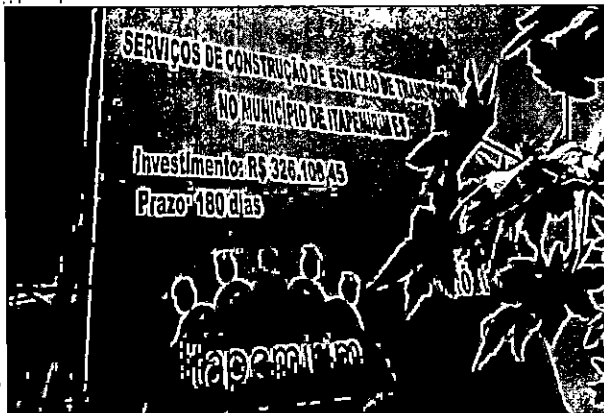 SERVIÇOS DE CONSTRUÇÃO DE ESTAÇÃO DE
NO MUNICÍPIO DE ITAPEMIRIM ES
Investimento: R$ 326.108,45
Prazo: 180 dias
Itapemirim